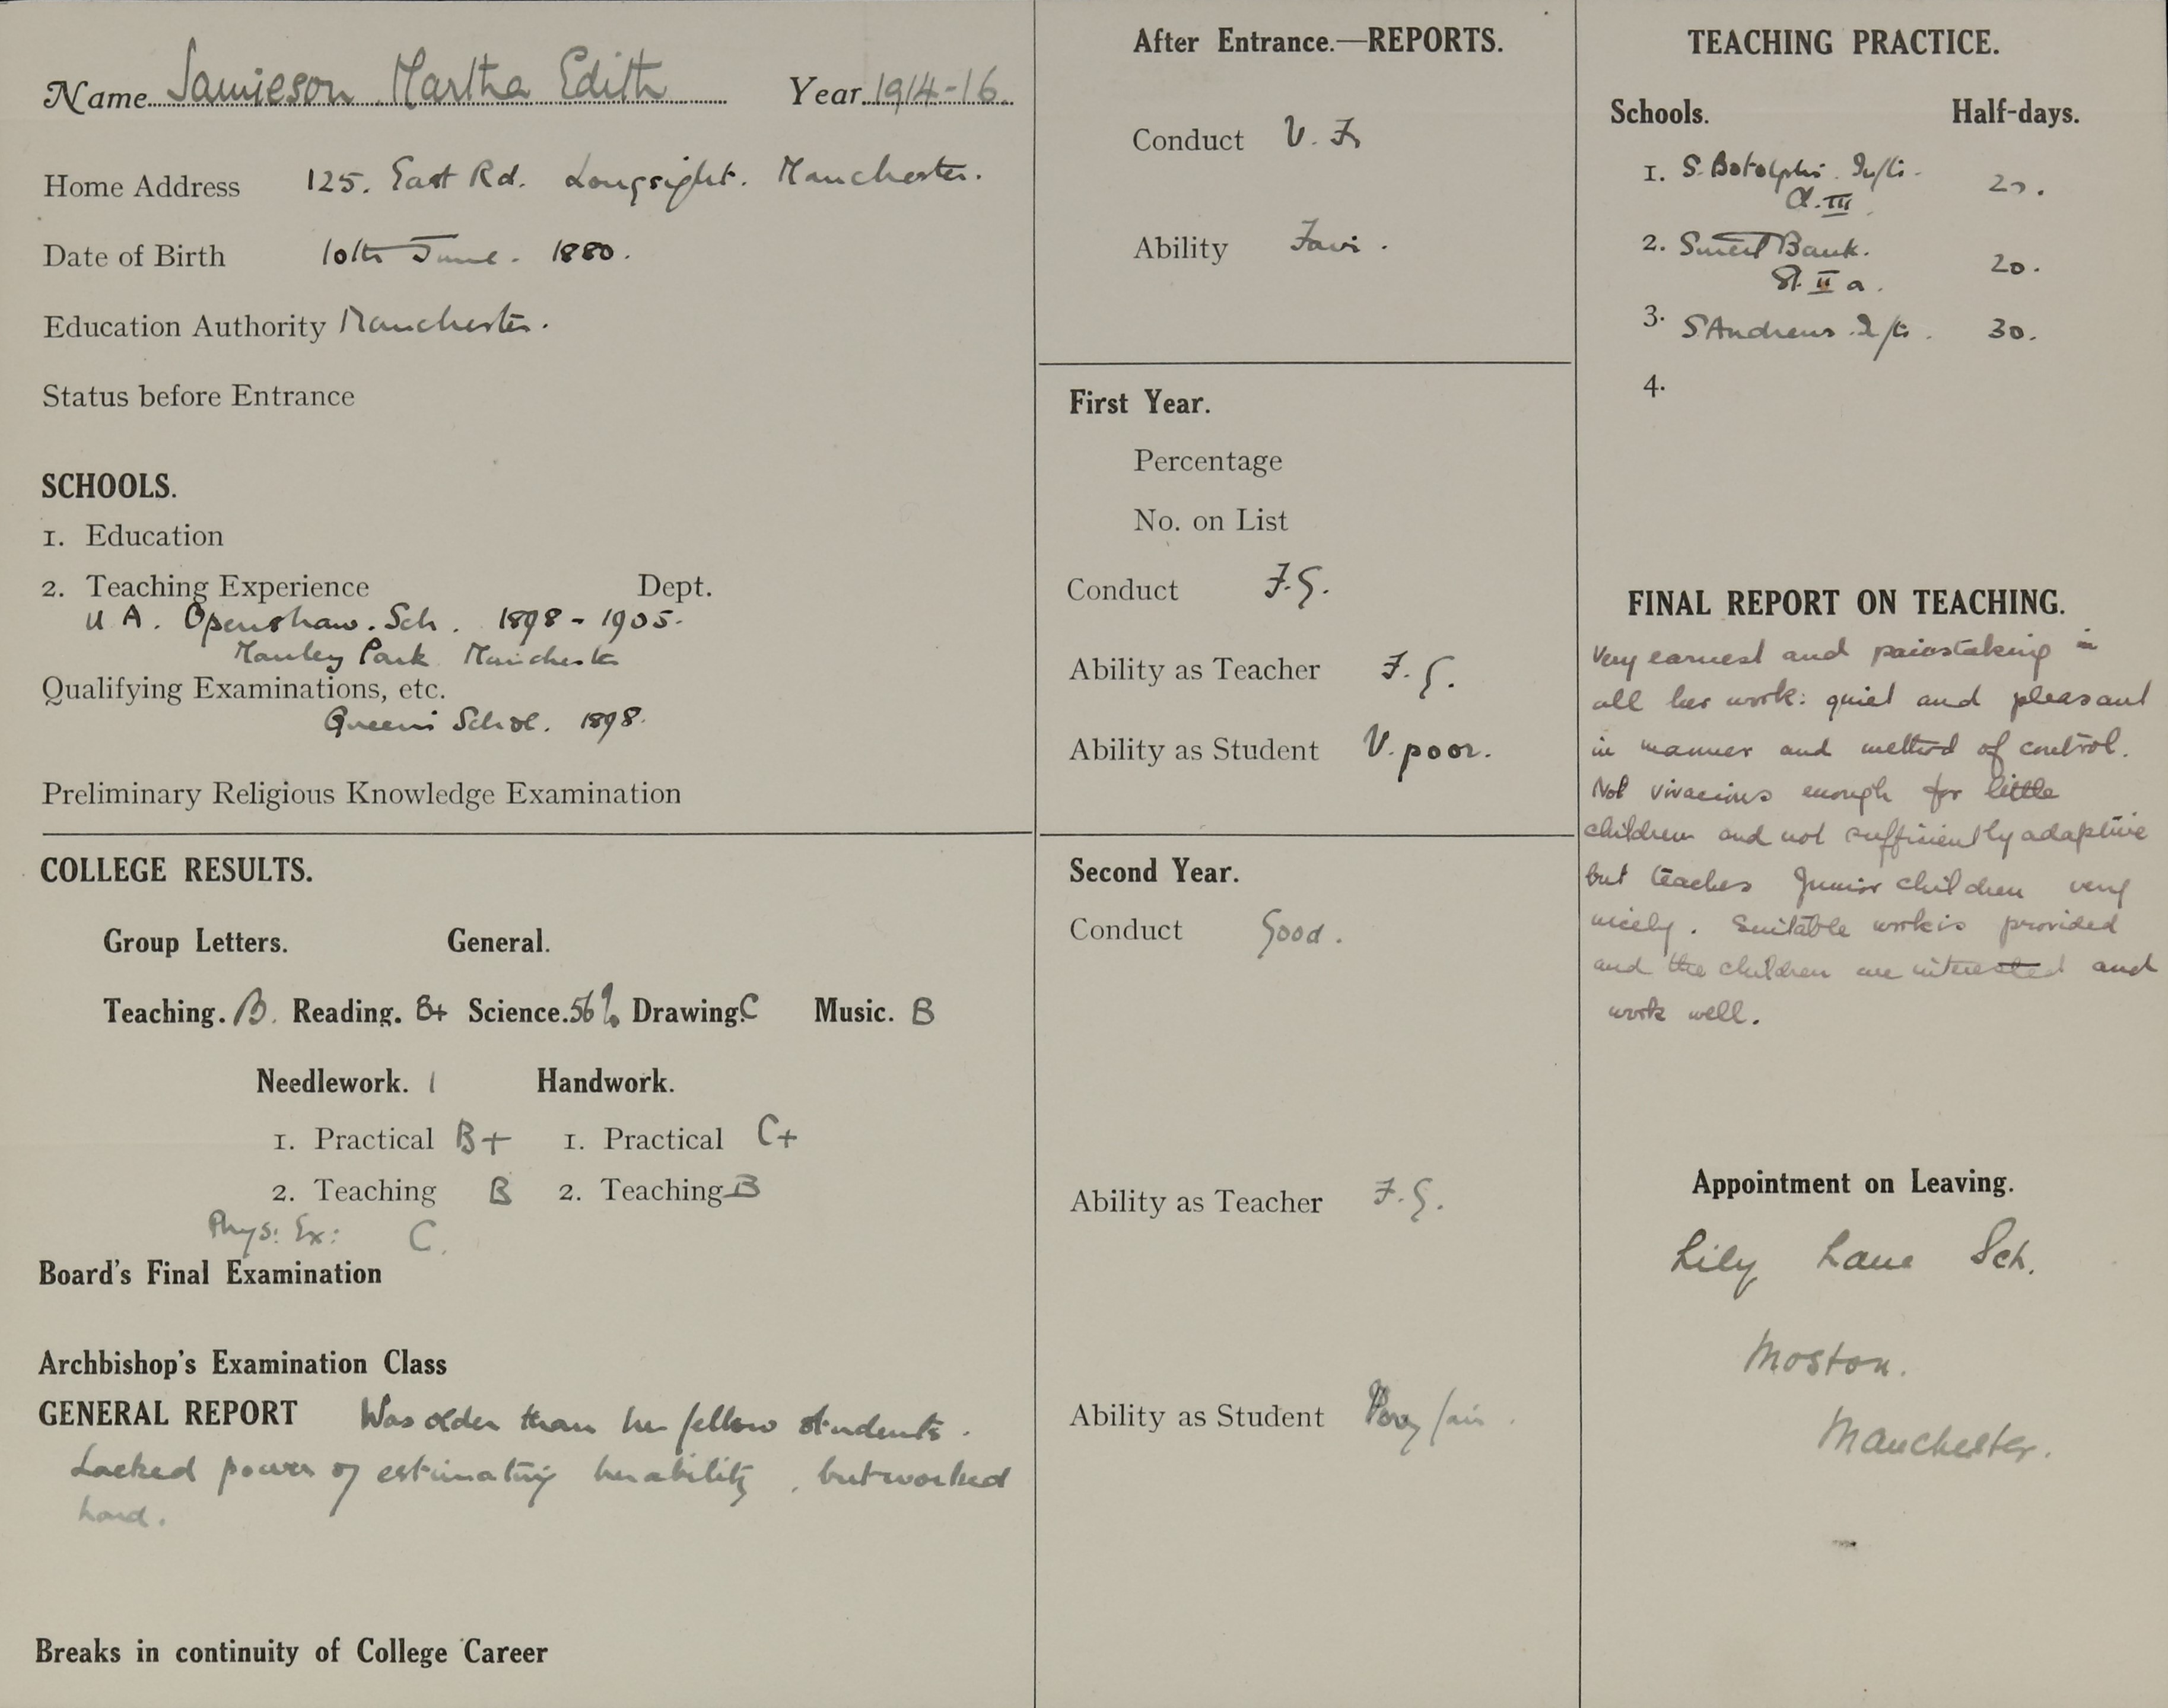 Name Jamieson Martha Edith Year 1914-16.
Home Address 125. East Rd. Longsight. Manchester.
Date of Birth 10th June. 1880.
Education Authority Manchester.
Status before Entrance
SCHOOLS.
1. Education
2. Teaching Experience Dept.
U.A. Openshaw. Sch. 1898 - 1905.
Manley Park Manchester
Qualifying Examinations, etc.
Queen's Schol. 1898.
Preliminary Religious Knowledge Examination
COLLEGE RESULTS.
Group Letters. General.
Teaching. B. Reading. B+ Science. 56% Drawing. C Music. B
Needlework. Handwork.
1. Practical B+ 1. Practical C+
2. Teaching B 2. Teaching B
Phys: Ex: C.
Board's Final Examination
Archbishop's Examination Class
GENERAL REPORT Was older than her fellow students.
Lacked power of estimating her ability, but worked
hard.
Breaks in continuity of College Career
After Entrance.—REPORTS.
Conduct V. Fr
Ability Fair.
First Year.
Percentage
No. on List
Conduct F.G.
Ability as Teacher F.G.
Ability as Student V. poor.
Second Year.
Conduct Good.
Ability as Teacher F.G.
Ability as Student fair.
TEACHING PRACTICE.
Schools. Half-days.
1. S. Botolph's. Infts. 20.
Cl. III
2. Bank. 20.
St. II a.
3. S. Andrews Infts. 30.
4.
FINAL REPORT ON TEACHING.
Very earnest and painstaking in
all her work: quiet and pleasant
in manner and method of control.
Not vivacious enough for little
children and not sufficiently adaptive
but teaches Junior children very
nicely. Suitable work is provided
and the children are interested and
work well.
Appointment on Leaving.
Lily Lane Sch.
Moston.
Manchester.